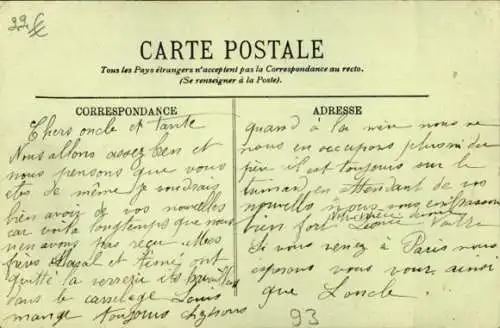 22 €
CARTE POSTALE
Tous les Pays étrangers n'acceptent pas la Correspondance au recto.
(Se renseigner à la Poste).
CORRESPONDANCE
Chers oncle et tante
Nous allons assez bien et
nous pensons que vous
etes de même Je voudrais
bien avoir de vos nouvelles
car voila longtemps que nous
n'en avons pas reçu Mes
frères et ont
quitté la
dans le carrelage Louis
mange toujours
ADRESSE
quand à la nous ne
nous en occupons plus mi du
père il est toujours sur le
en attendant de vos
nouvelles nous vous embrassons
bien fort Léonie Votre
Si vous venez à Paris nous
esperons vous voir ainsi
que Loncle.
93